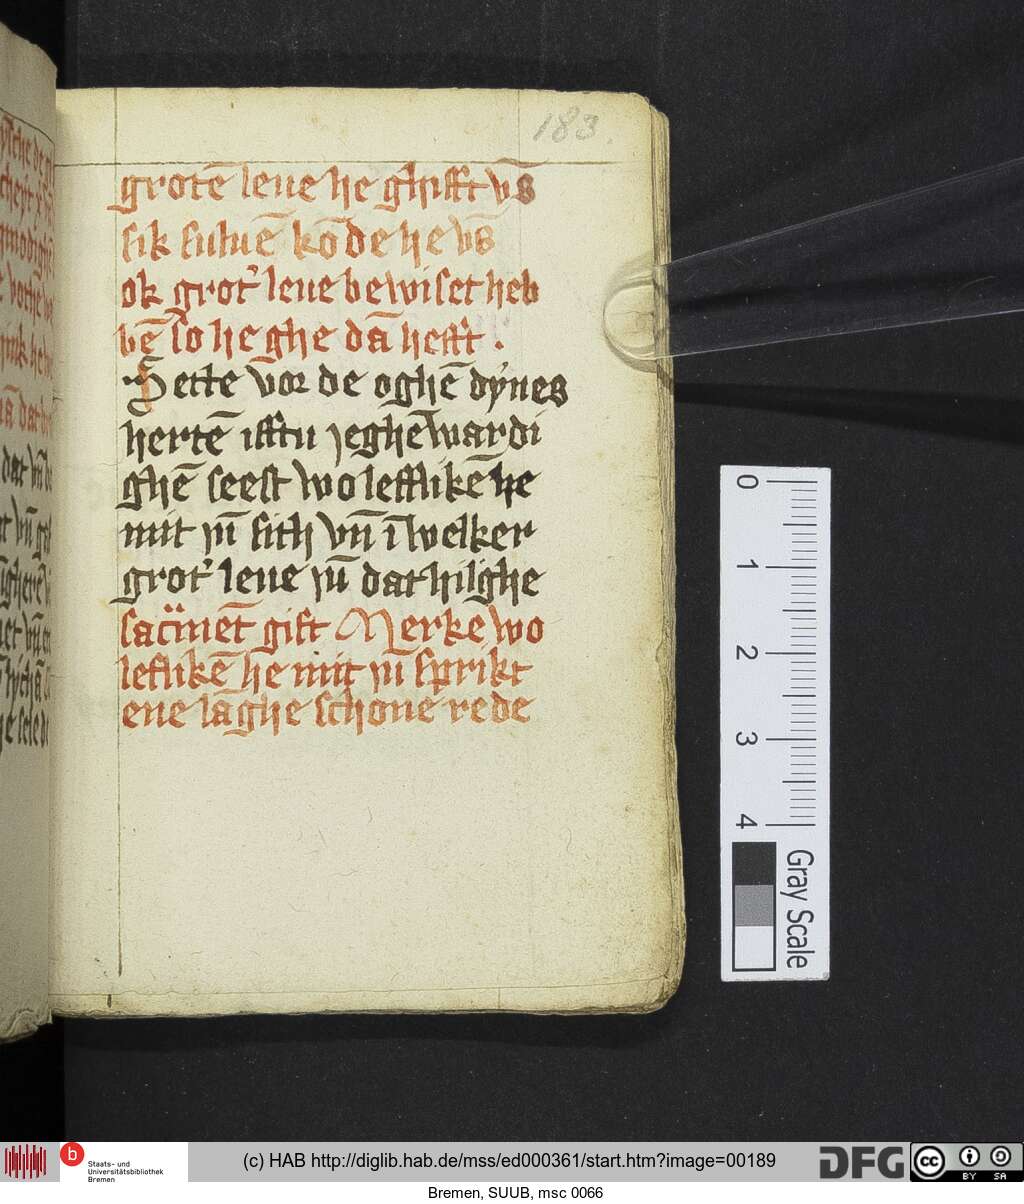 183
grotē leue he ghifft vs̄
sik suluē kōde he vs̄
ok grot' leue bewiset heb
bē so he ghe dā hefft .
Sette vor de oghē dynes
hertē ifftu jeghēwardi
ghē seest wo lefflikē he
mit jū sith vn̄ ī welker
grot' leue jū dat hilghe
sacmēt gift Merke wo
leflikē he mit jū sprikt
ene lāghe schone rede
0
1
2
3
4
Gray Scale
b
Staats- und
Universitätsbibliothek
Bremen
(c) HAB http://diglib.hab.de/mss/ed000361/start.htm?image=00189
DFG
cc
BY SA
Bremen, SUUB, msc 0066